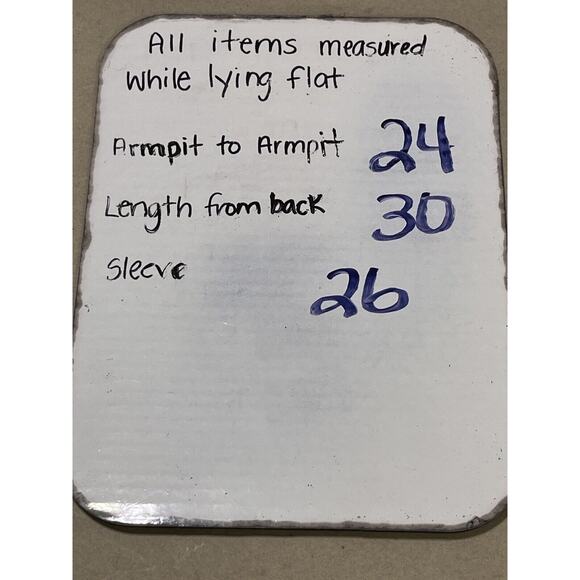 All items measured
while lying flat
Armpit to Armpit 24
Length from back 30
Sleeve 26